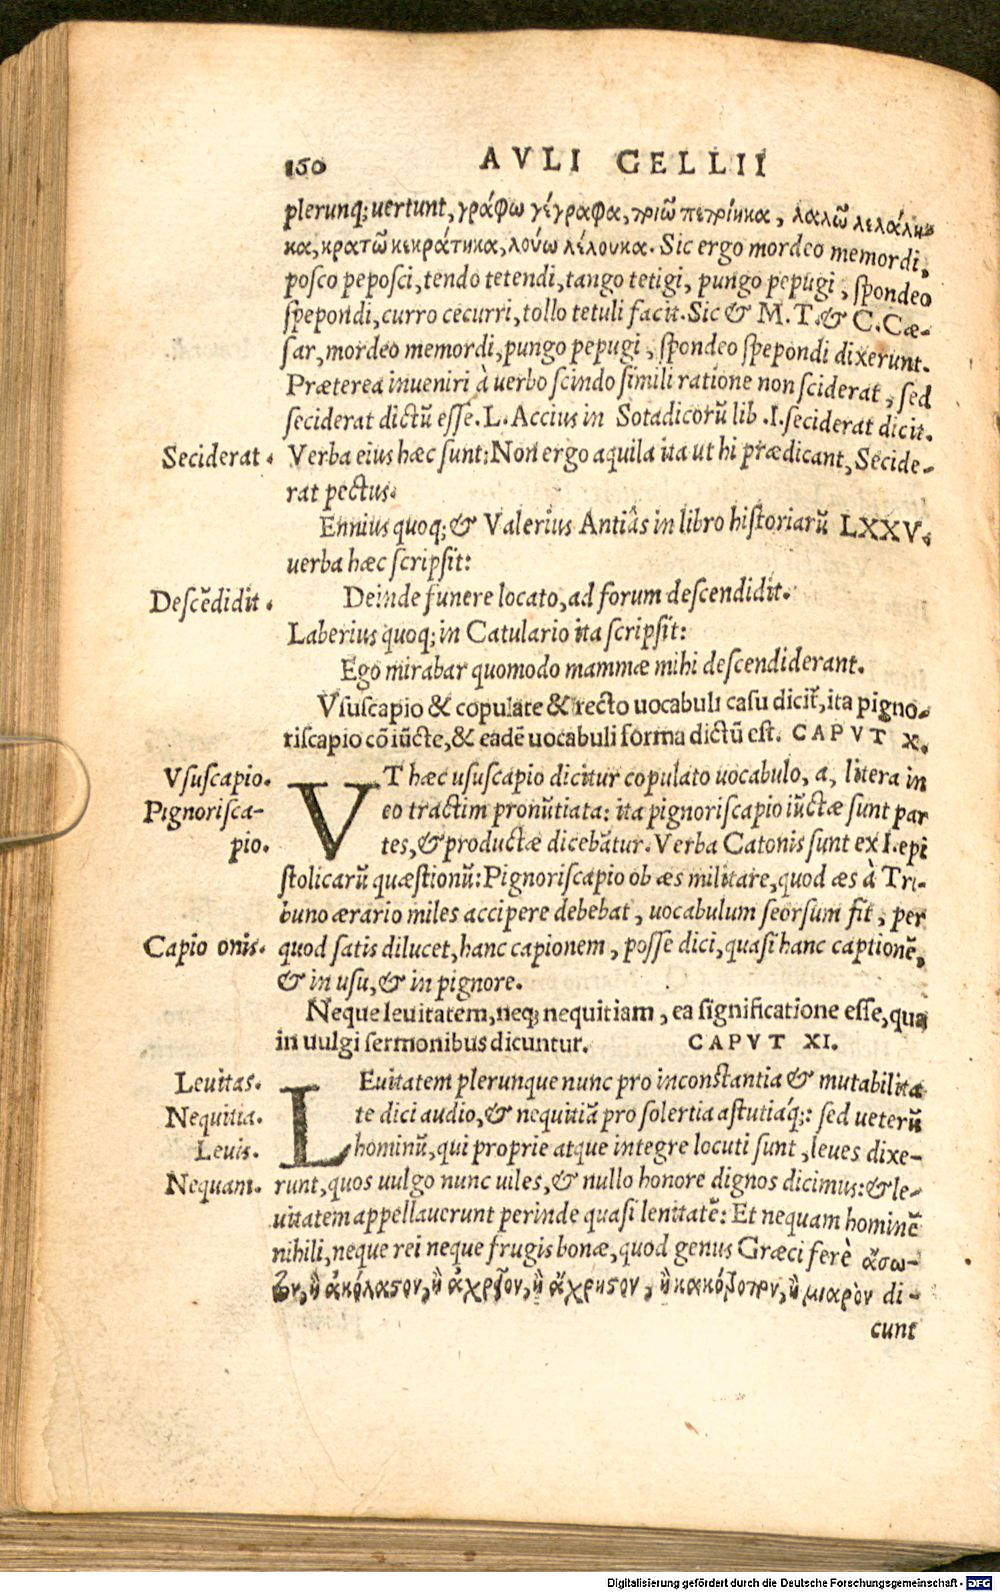 150 AVLI GELLII
plerunq; uertunt, γράφω γέγραφα, τριῶ πετρίηκα, λαλῶ λελάλη-
κα, κρατῶ κεκράτηκα, λούω λέλουκα. Sic ergo mordeo memordi,
posco peposci, tendo tetendi, tango tetigi, pungo pepugi, spondeo
spepondi, curro cecurri, tollo tetuli facit. Sic & M. T. & C. Cæ-
sar, mordeo memordi, pungo pepugi, spondeo spepondi dixerunt.
Præterea inueniri à uerbo scindo simili ratione non sciderat, sed
seciderat dictũ esse. L. Accius in Sotadicorũ lib. I. seciderat dicit.
Seciderat. Verba eius hæc sunt: Non ergo aquila ita ut hi prædicant, Secide-
rat pectus.
Ennius quoq; & Valerius Antiâs in libro historiarũ LXXV.
uerba hæc scripsit:
Descẽdidit. Deinde funere locato, ad forum descendidit.
Laberius quoq; in Catulario ita scripsit:
Ego mirabar quomodo mammæ mihi descendiderant.
Vsuscapio & copulate & recto uocabuli casu dicit̃, ita pigno-
riscapio cõiũcte, & eadẽ uocabuli forma dictũ est. CAPVT X.
Vsuscapio. VT hæc ususcapio dicitur copulato uocabulo, a, litera in
Pignorisca- eo tractim pronũtiata: ita pignoriscapio iũctæ sunt par
pio. tes, & productæ dicebãtur. Verba Catonis sunt ex I. epi
stolicarũ quæstionũ: Pignoriscapio ob æs militare, quod æs à Tri-
buno ærario miles accipere debebat, uocabulum seorsum fit, per
Capio onis. quod satis dilucet, hanc capionem, posse dici, quasi hanc captionẽ,
& in usu, & in pignore.
Neque leuitatem, neq; nequitiam, ea significatione esse, qua
in uulgi sermonibus dicuntur. CAPVT XI.
Leuitas. LEuitatem plerunque nunc pro inconstantia & mutabilita
Nequitia. te dici audio, & nequitiã pro solertia astutiáq;: sed ueterũ
Leuis. hominũ, qui proprie atque integre locuti sunt, leues dixe-
Nequam. runt, quos uulgo nunc uiles, & nullo honore dignos dicimus: & le-
uitatem appellauerunt perinde quasi lenitatẽ: Et nequam hominẽ
nihili, neque rei neque frugis bonæ, quod genus Græci ferè ἄσω-
τον, ἢ ἀκόλαστον, ἢ ἀχρεῖον, ἢ ἄχρηστον, ἢ κακότροπον, ἢ μιαρὸν di-
cunt
Digitalisierung gefördert durch die Deutsche Forschungsgemeinschaft - DFG